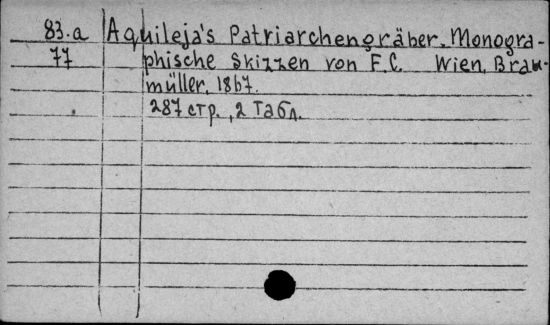 83.a Aquileja's Patriarchengräber. Monogra-
77 phische Skizzen von F.C. Wien, Brau-
müller, 1867.
287 стр., 2 табл.